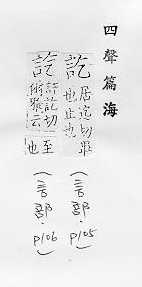 四聲篇海
訖
居迄切畢
也止也
(言部.P105)
訖
許訖切
俯雅云
至
也
(言部.P106)